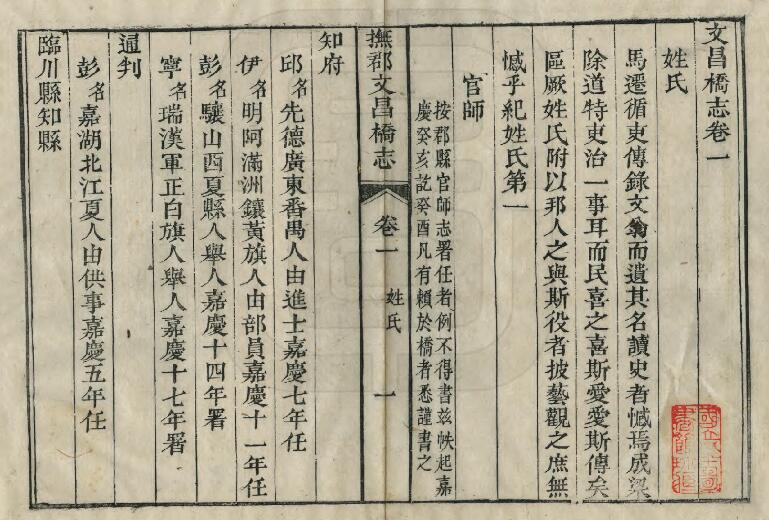 文昌橋志卷一
姓氏
馬遷循吏傳錄文翁而遺其名讀史者憾焉成梁
除道特吏治一事耳而民喜之喜斯愛愛斯傳矣
區厥姓氏附以邦人之與斯役者披藝觀之庶無
憾乎紀姓氏第一
官師
按郡縣官師志署任者例不得書茲帙起嘉
慶癸亥訖癸酉凡有賴於橋者悉謹書之
撫郡文昌橋志
卷一
姓氏
一
知府
邱名先德廣東番禺人由進士嘉慶七年任
伊名明阿滿洲鑲黃旗人由部員嘉慶十一年任
彭名驤山西夏縣人舉人嘉慶十四年署
寧名瑞漢軍正白旗人舉人嘉慶十七年署
通判
彭名嘉湖北江夏人由供事嘉慶五年任
臨川縣知縣